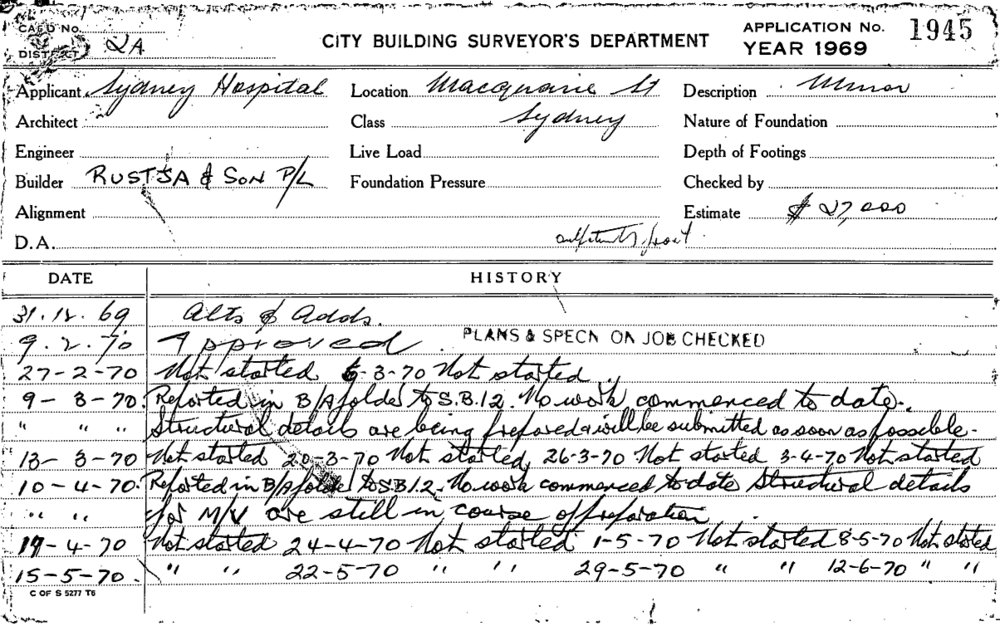 CARD No.
DISTRICT 2A
CITY BUILDING SURVEYOR'S DEPARTMENT
APPLICATION No. 1945
YEAR 1969
Applicant Sydney Hospital Location Macquarie St Description Minor
Architect Class Sydney Nature of Foundation
Engineer Live Load Depth of Footings
Builder RUSTJA & SON P/L Foundation Pressure Checked by
Alignment Estimate $ 27,000
D.A.
DATE HISTORY
31.12.69 Alts & Adds.
9.2.70 Approved. PLANS & SPECN ON JOB CHECKED
27-2-70 Not started 6-3-70 Not started.
9-3-70. Reported in B/A folder to S.B.12. No work commenced to date.
" " " Structural details are being prepared & will be submitted as soon as possible.
13-3-70 Not started 20-3-70 Not started, 26-3-70 Not started 3-4-70 Not started
10-4-70. Reported in B/A folder to S.B.12. No work commenced to date Structural details
" " " for M/V are still in course of preparation.
17-4-70 Not started 24-4-70 Not started 1-5-70 Not started 8-5-70 Not started
15-5-70. " " 22-5-70 " " 29-5-70 " " 12-6-70 " "
C OF S 5277 T6